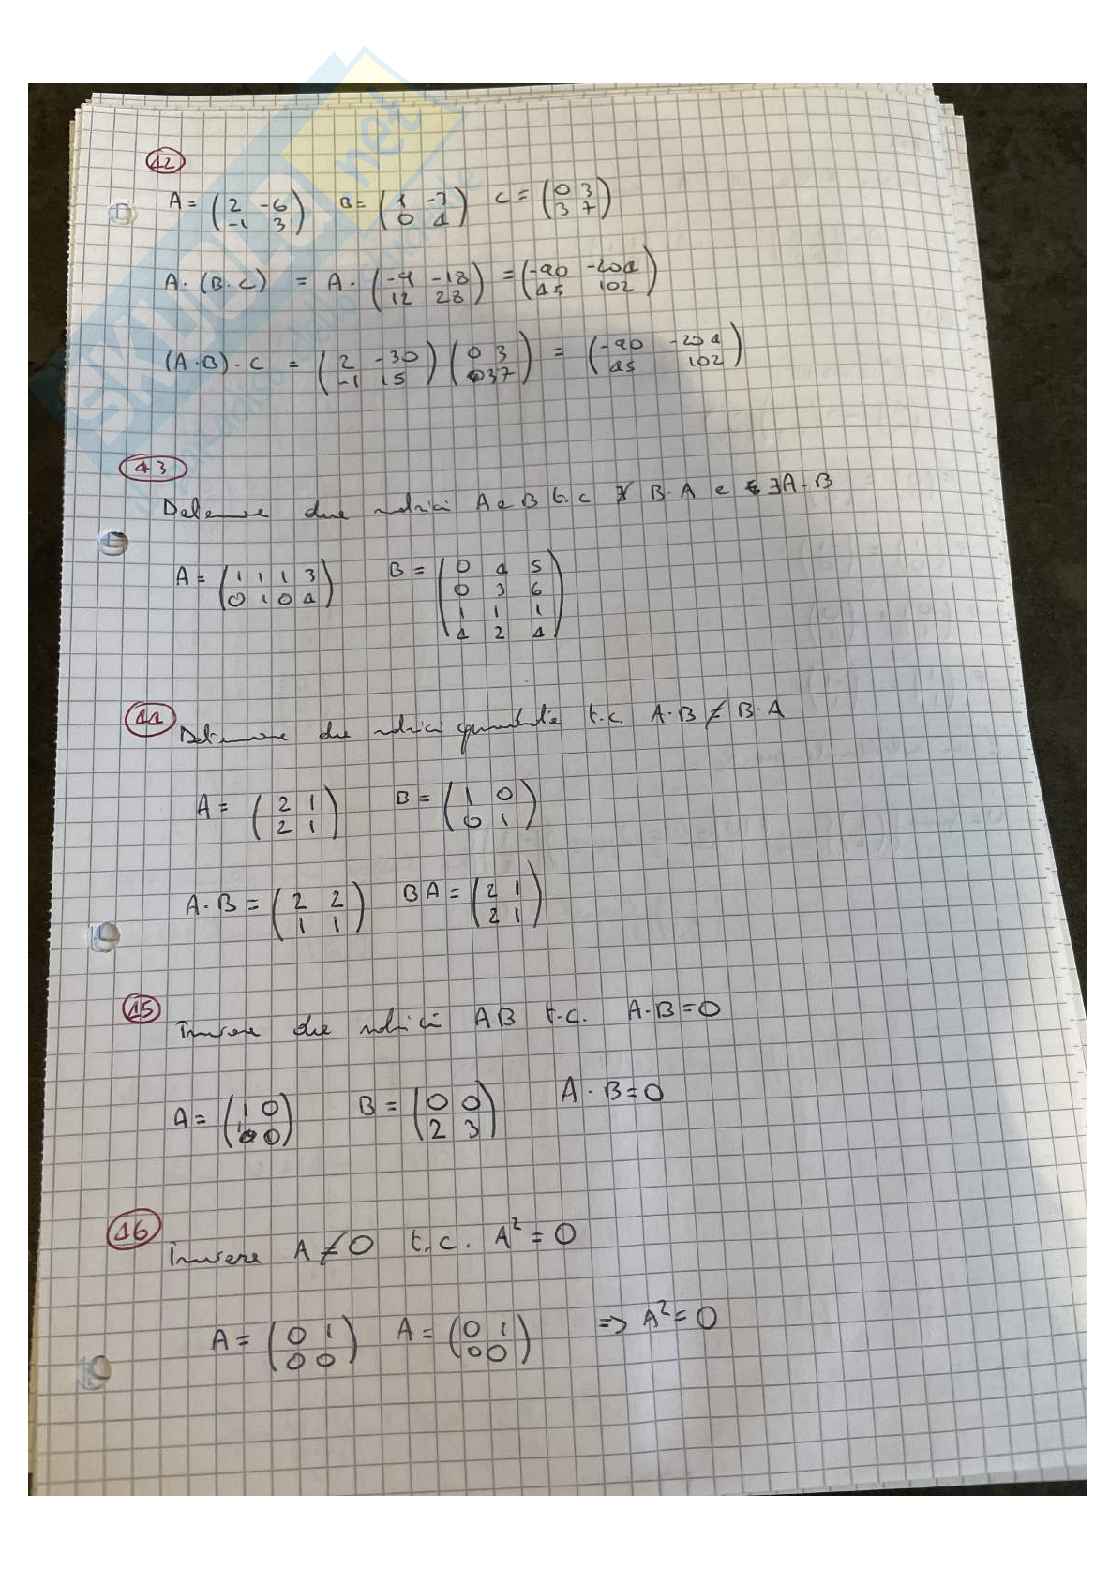 12
A = (2 -6; -1 3) B = (1 -3; 0 4) C = (0 3; 3 7)
A · (B · C) = A · (-9 -18; 12 28) = (-90 -204; 45 102)
(A · B) · C = (2 -30; -1 15) (0 3; 3 7) = (-90 -204; 45 102)
13
due matrici A e B t.c ∄ B · A e ∃ A · B
A = (1 1 1 3; 0 1 0 4) B = (0 4 5; 0 3 6; 1 1 1; 4 2 4)
14
due matrici quadrate t.c A · B ≠ B · A
A = (2 1; 2 1) B = (1 0; 0 1)
A · B = (2 2; 1 1) BA = (2 1; 2 1)
15
Trovare due matrici A B t.c. A · B = 0
A = (1 0; 1 0) B = (0 0; 2 3) A · B = 0
16
Trovare A ≠ 0 t.c. A² = 0
A = (0 1; 0 0) A = (0 1; 0 0) => A² = 0
SKUOLA.net